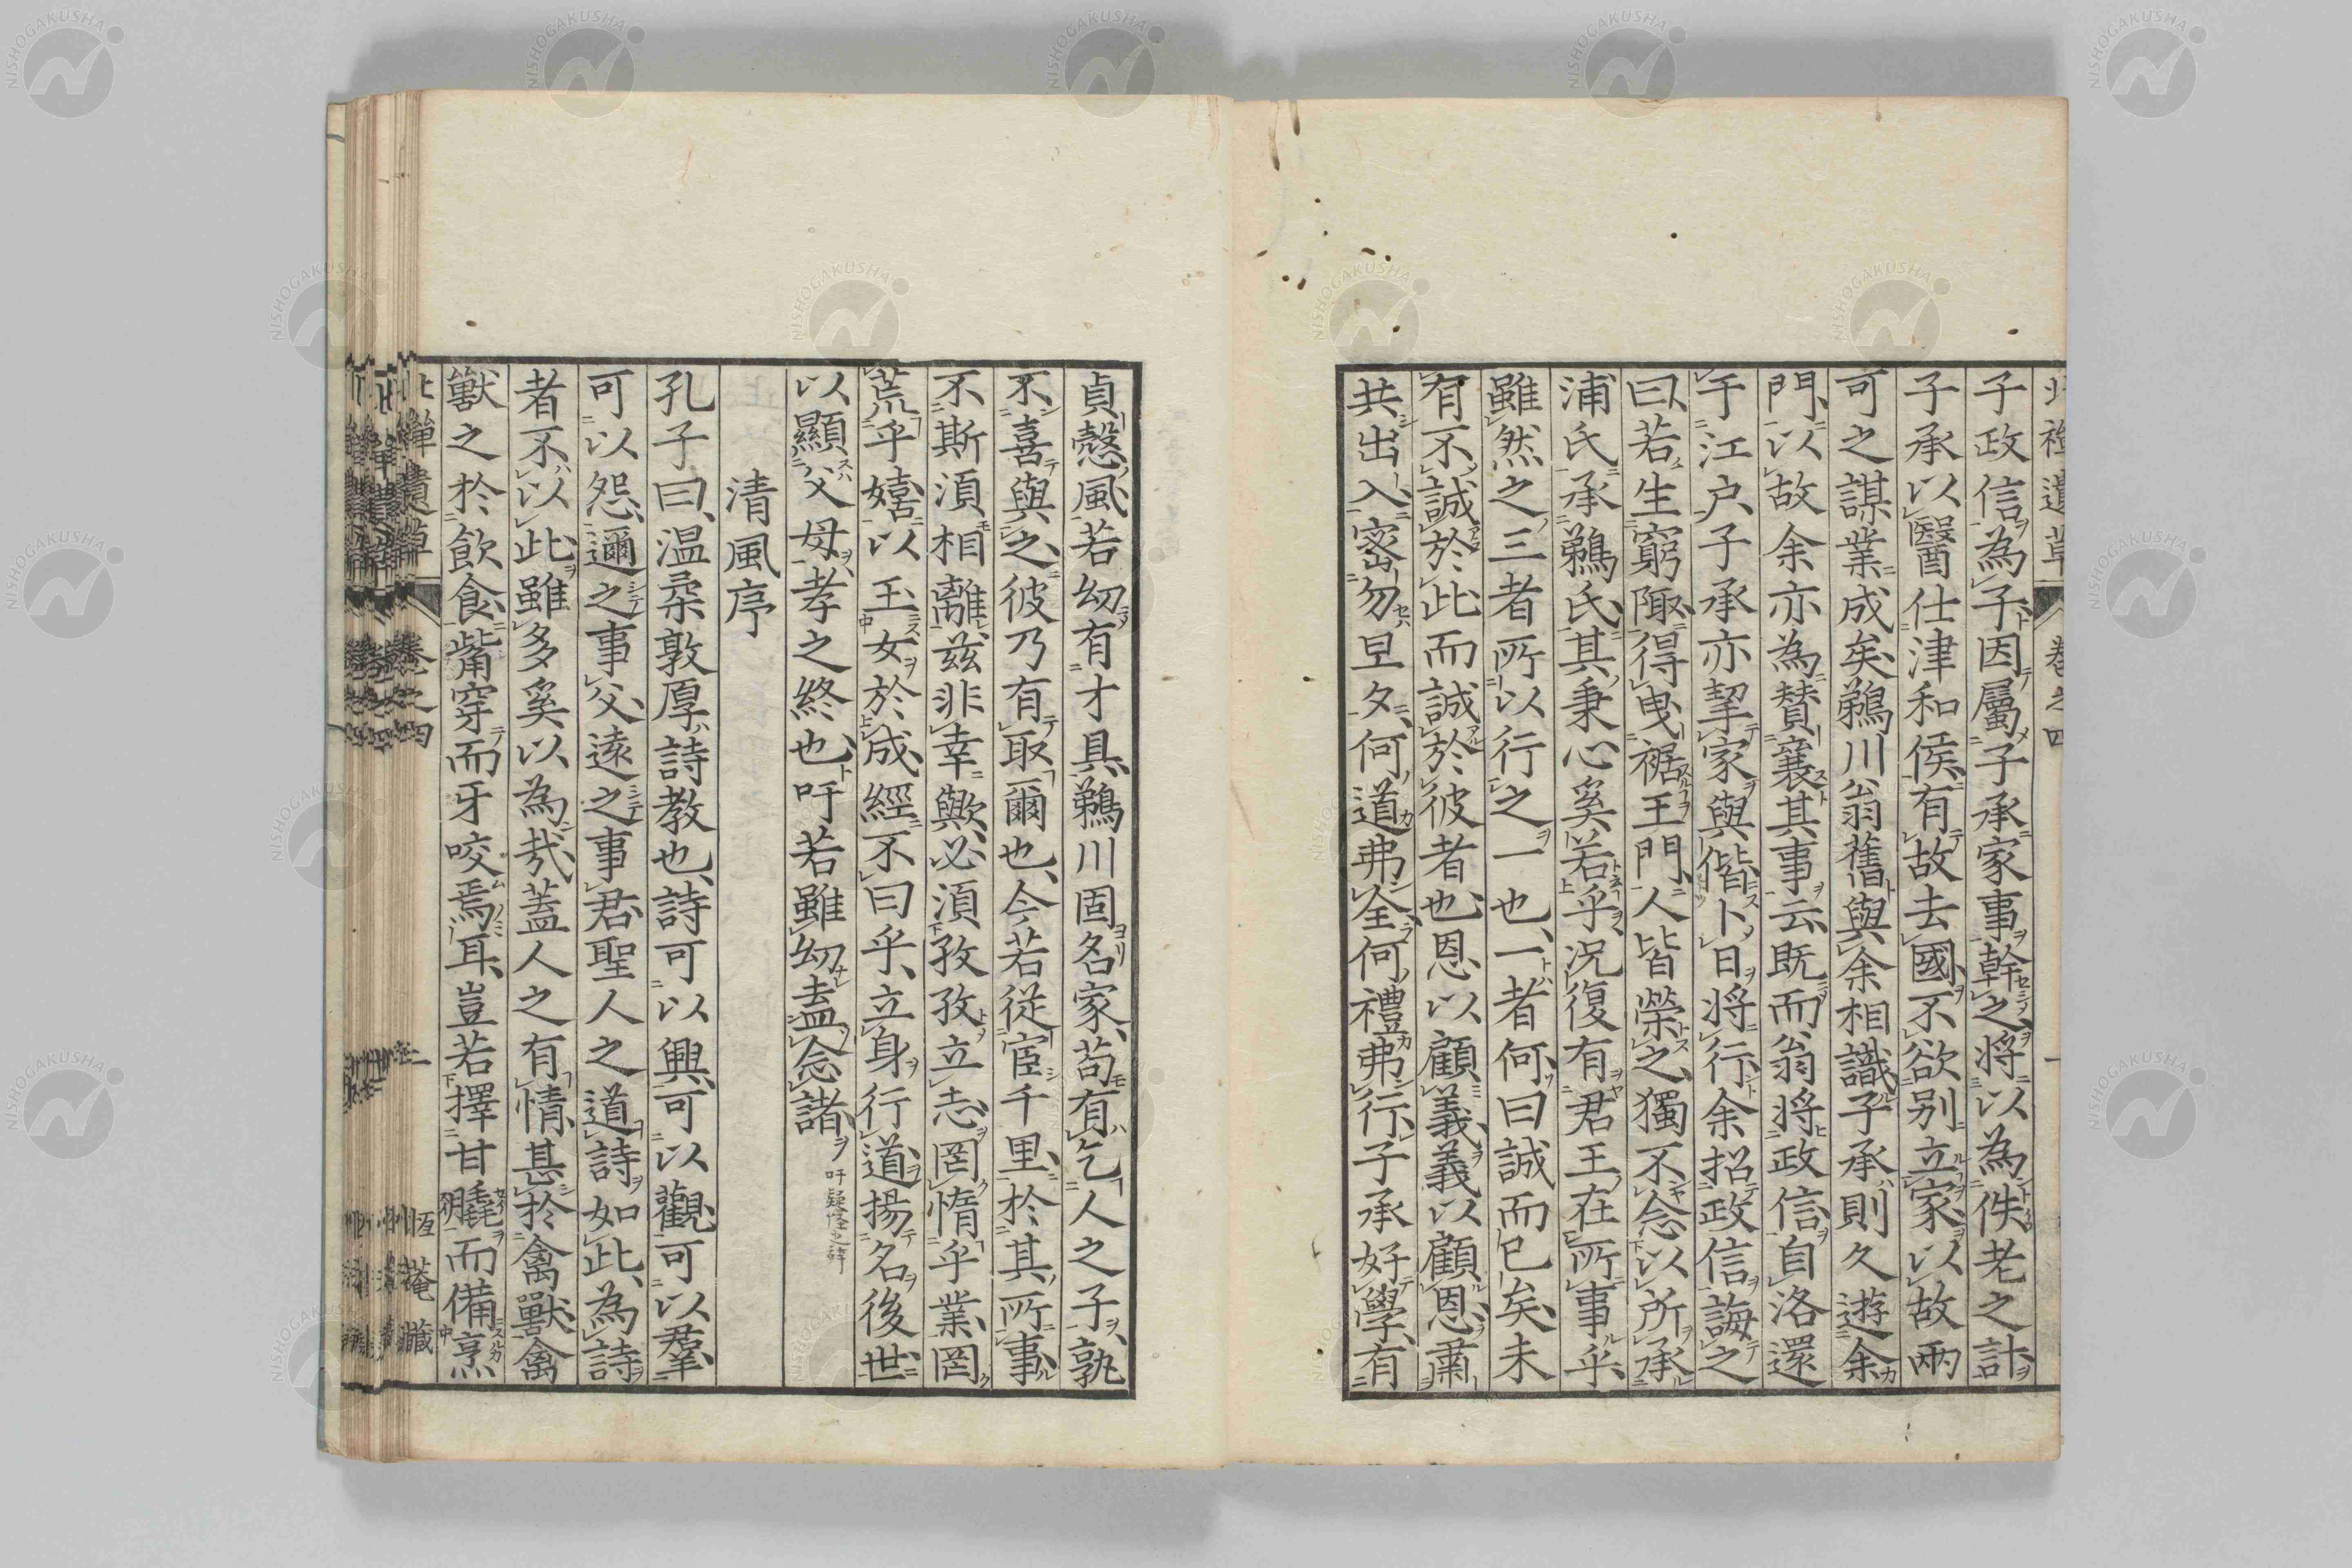 子政信為子因屬子承家事幹之將以為佚老之計
子承以醫仕津和侯有故去國不欲別立家以故兩
可之謀業成矣鵜川翁舊與余相識子承則久遊余
門以故余亦為賛襄其事云既而翁將政信自洛還
于江戸子承亦挈家與偕卜日將行余招政信誨之
曰若生窮陬得曳裾王門人皆榮之獨不念以所承
浦氏承鵜氏其秉心奚若乎況復有君王在所事乎
雖然之三者所以行之一也一者何曰誠而已矣未
有不誠於此而誠於彼者也恩以顧義義以顧恩肅
共出入密勿旦夕何道弗全何禮弗行子承好學有
貞慤風若幼有才具鵜川固名家苟有乞人之子孰
不喜與之彼乃有取爾也今若從宦千里於其所事
不斯須相離茲非幸歟必須孜孜立志罔惰乎業罔
荒乎嬉以玉女於成經不曰乎立身行道揚名後世
以顯父母孝之終也吁若雖幼盍念諸 吁疑怪之辞
清風序
孔子曰温柔敦厚詩教也詩可以興可以觀可以羣
可以怨邇之事父遠之事君聖人之道詩如此為詩
者不以此雖多奚以為哉蓋人之有情甚於禽獸禽
獸之於飲食觜穿而牙咬焉耳豈若擇甘脆而備烹
卷之四
恆菴藏
NISHOGAKUSHA